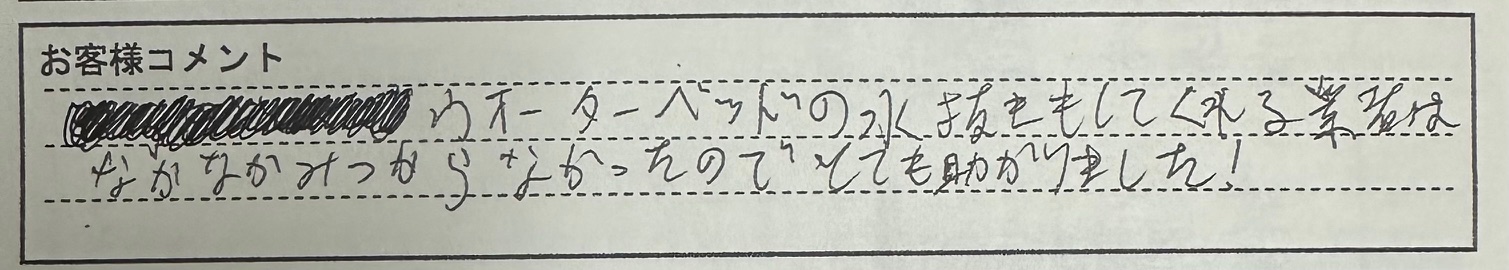 お客様コメント
ウオーターベッドの水抜きもしてくれる業者は
なかなかみつからなかったのでとても助かりました!